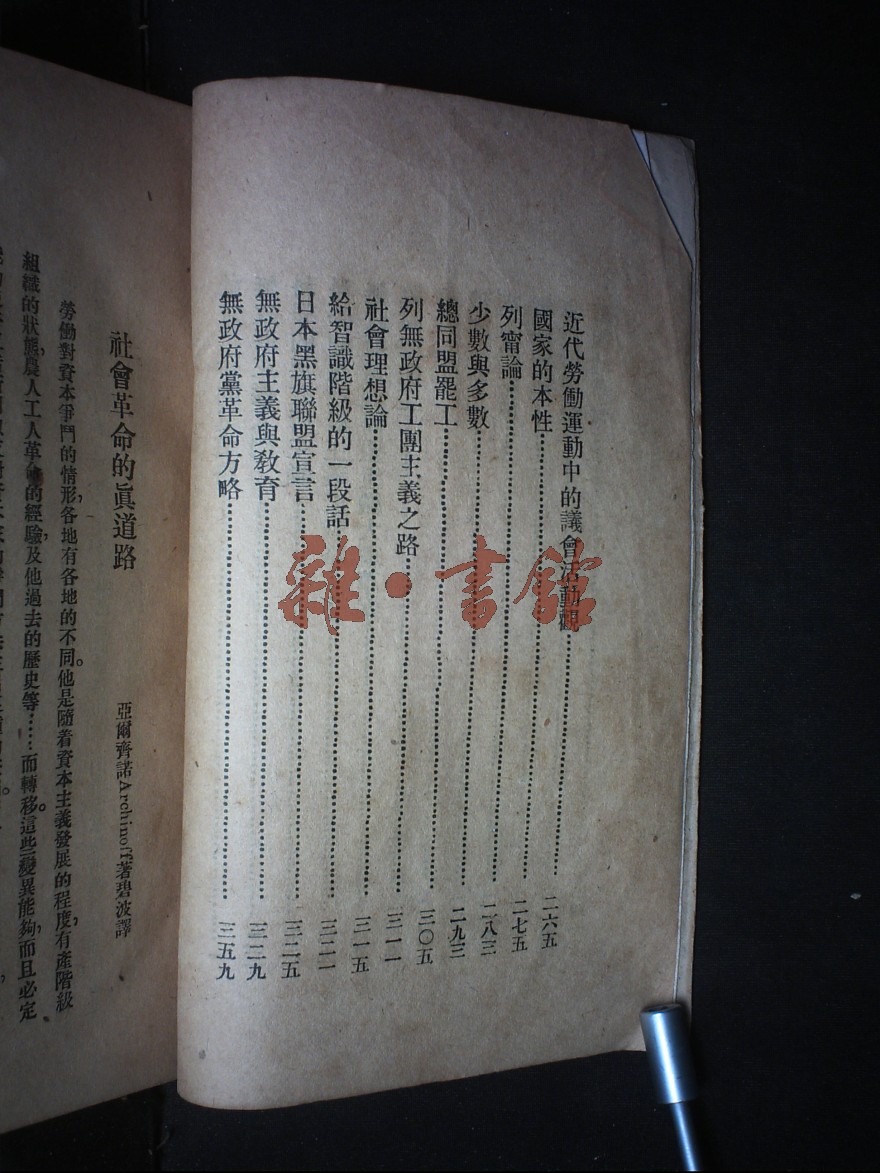 近代勞働運動中的議會活動觀……二六五
國家的本性……二七五
列甯論……二八三
少數與多數……二九三
總同盟罷工……三〇五
列無政府工團主義之路……三一一
社會理想論……三一五
給智識階級的一段話……三二一
日本黑旗聯盟宣言……三二五
無政府主義與教育……三二九
無政府黨革命方略……三五九
雜·書館
社會革命的眞道路
亞爾齊諾Archinoff著碧波譯
勞働對資本爭鬥的情形，各地有各地的不同。他是隨着資本主義發展的程度，有產階級
組織的狀態，農人工人革命的經驗，及他過去的歷史等……而轉移。這些變異能夠，而且必定